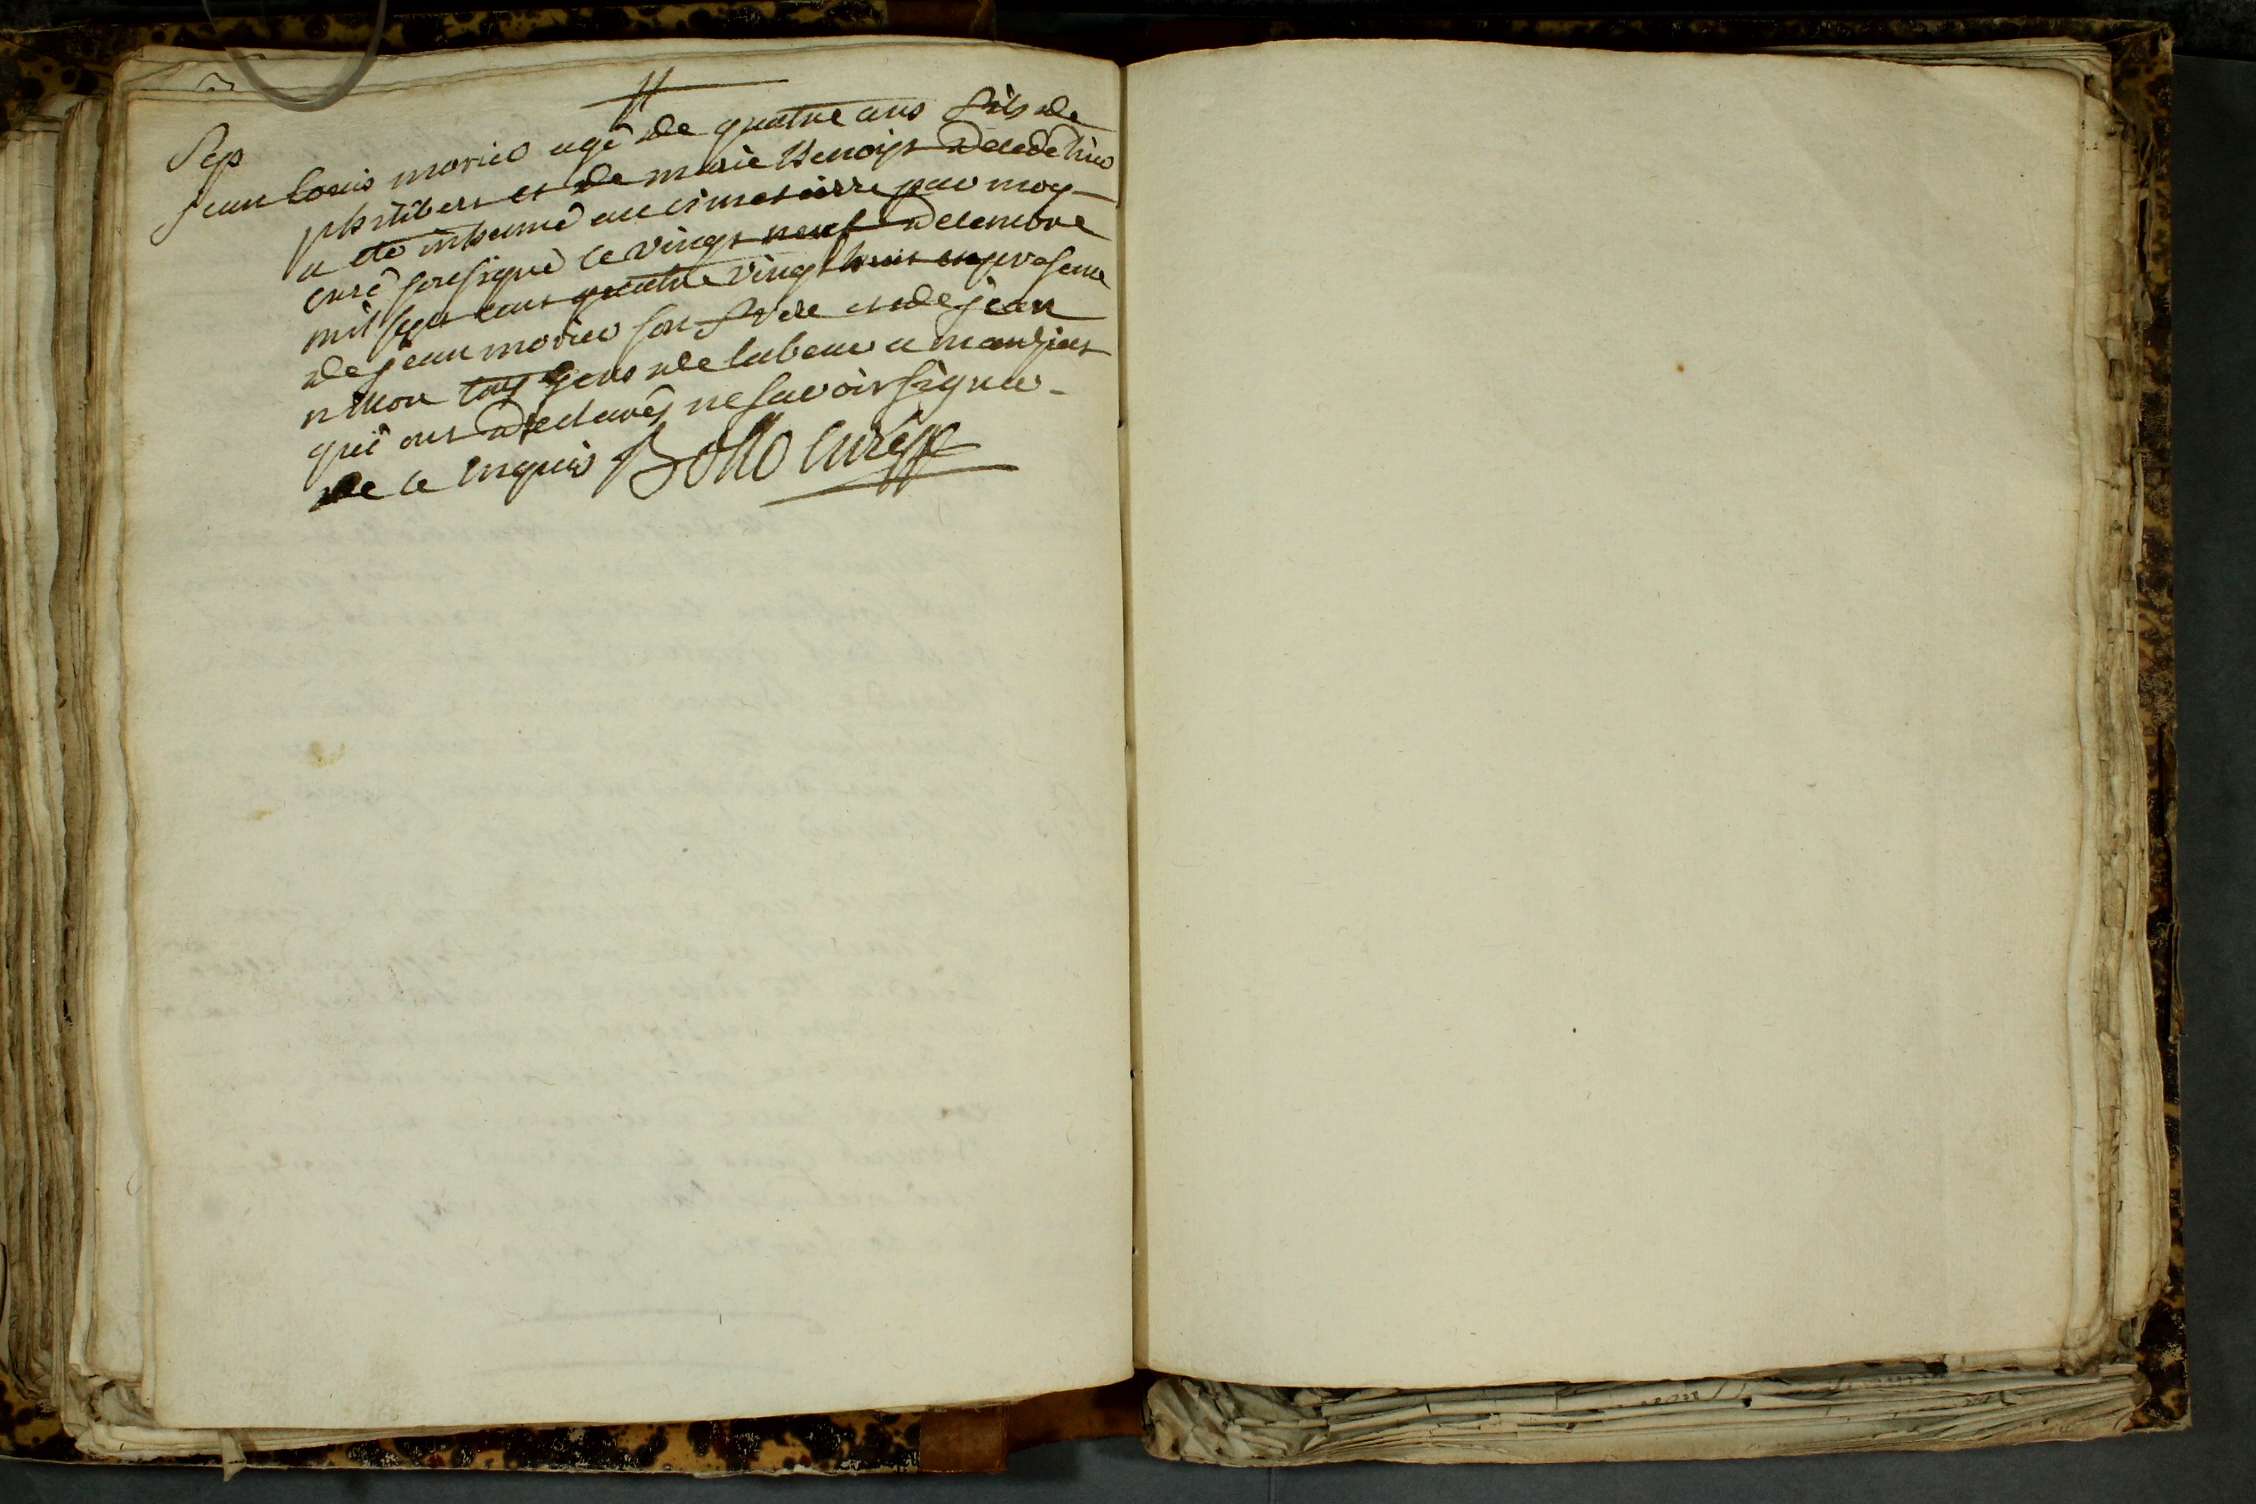 Sep
jean Louis morier agé de quatre ans fils de
philibert et de marie Benoist decede hier
a été inhumé au cimetierre par moy
curé soussigné le vingt neuf decembre
mil sept cent quatre vingt huit en presence
de jean morier son frere et de jean
tous gens de labeur a
qui ont declarés ne savoir signer
de ce enquis Bollo curé